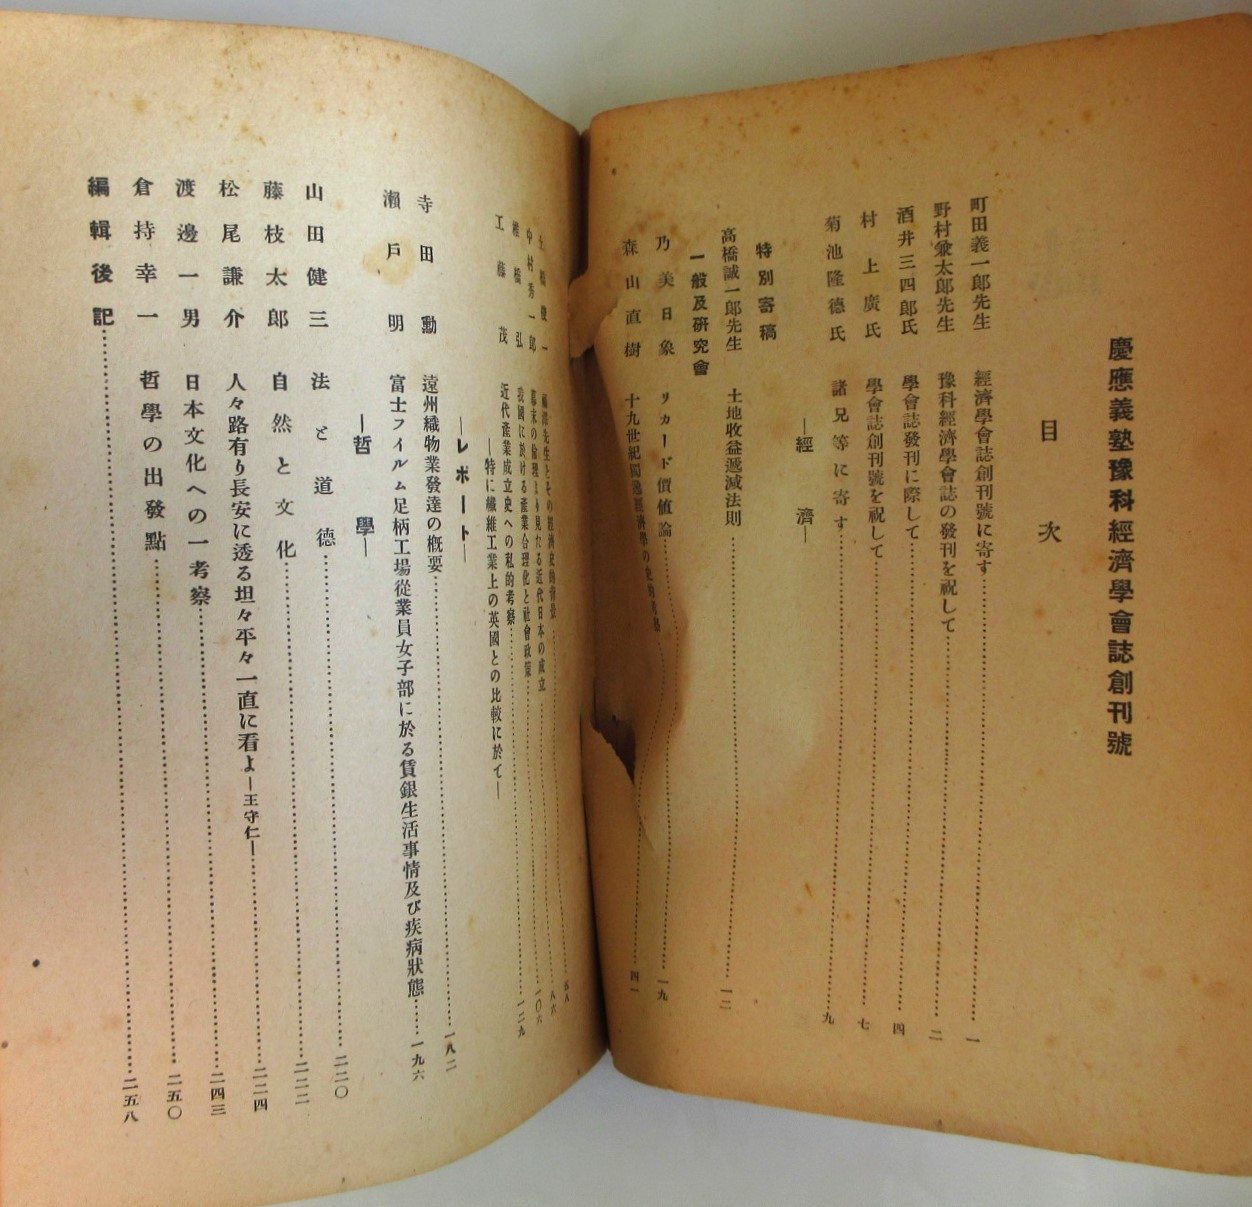 慶應義塾豫科經濟學會誌創刊號
目次
町田義一郎先生 經濟學會誌創刊號に寄す 一
野村兼太郎先生 豫科經濟學會誌の發刊を祝して 二
酒井三四郎氏 學會誌發刊に際して 四
村上廣氏 學會誌創刊號を祝して 七
菊池隆德氏 諸兄等に寄す 九
―經濟―
特別寄稿
高橋誠一郎先生 土地收益遞減法則 一二
一般及研究會
乃美日象 リカード價値論 一九
森山直樹 十九世紀獨逸經濟學の史的考察 四一
橋 一 福澤先生とその經濟史的 五八
中村秀一郎 幕末の倫理より見たる近代日本の成立 八六
椎橋弘 我國に於ける產業合理化と社會政策 一〇六
工藤茂 近代產業成立史への私的考察 一二九
―特に纖維工業上の英國との比較に於て―
―レポート―
寺田勳 遠州織物業發達の概要 一八二
瀨戶明 富士フイルム足柄工場從業員女子部に於る賃銀生活事情及び疾病狀態 一九六
―哲學―
山田健三 法と道德 二二〇
藤枝太郎 自然と文化 二二二
松尾謙介 人々路有り長安に透る坦々平々一直に看よ―王守仁― 二二四
渡邊一男 日本文化への一考察 二四三
倉持幸一 哲學の出發點 二五〇
編輯後記 二五八